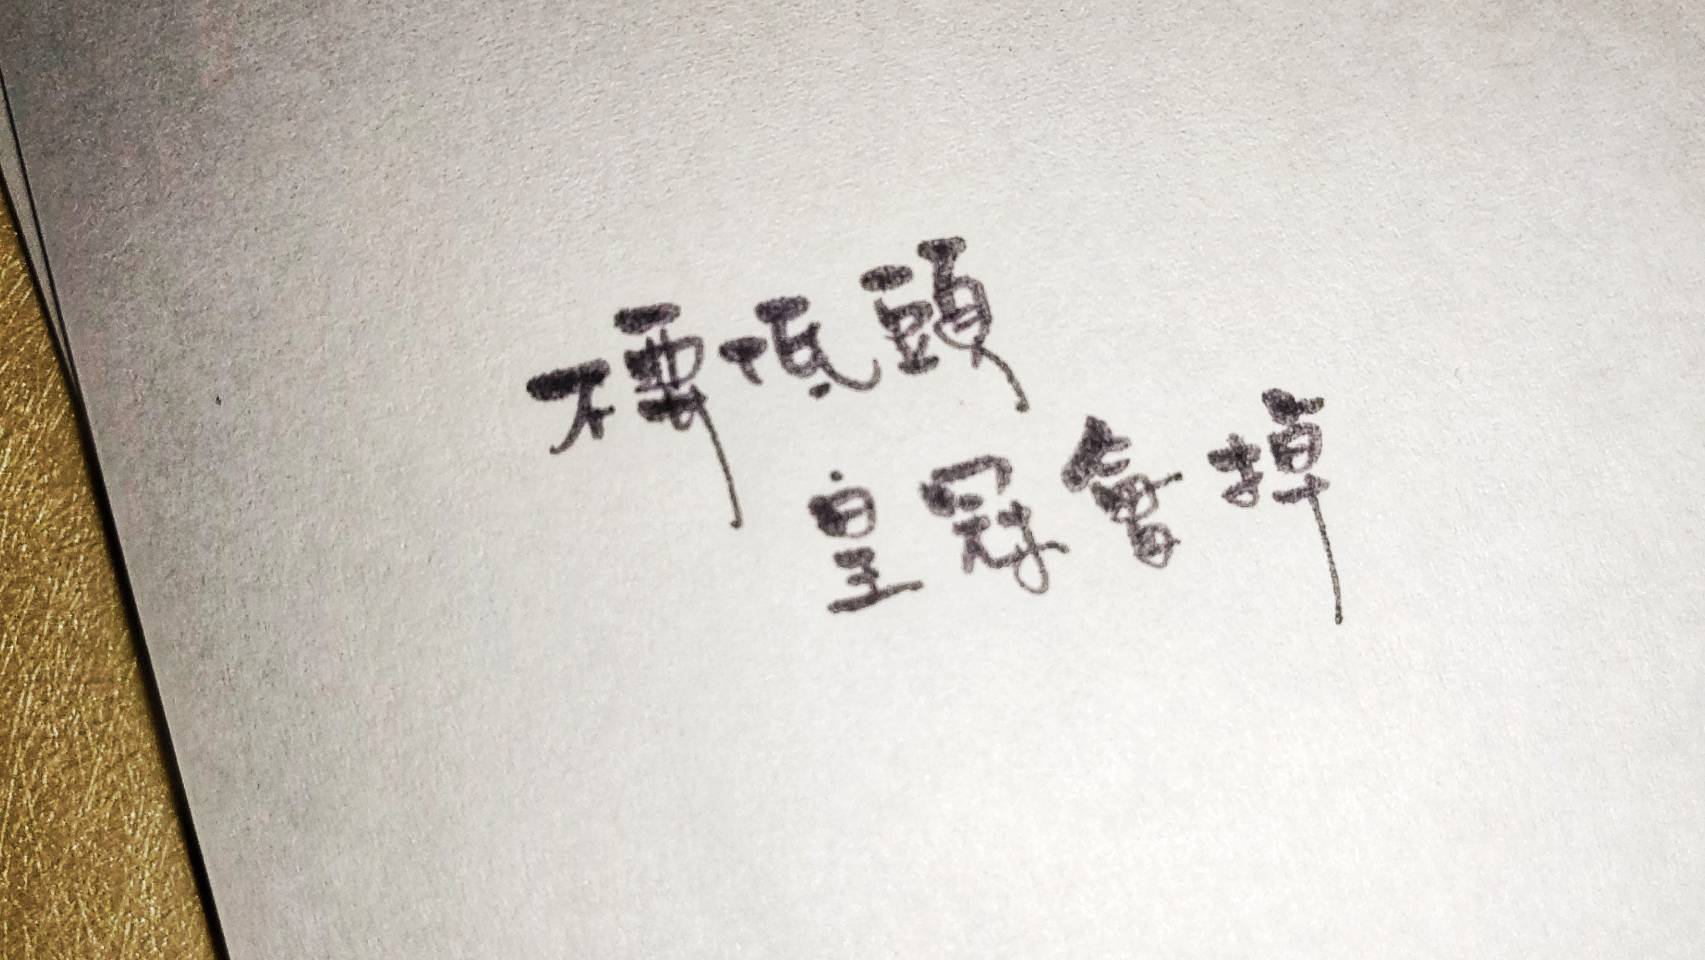 不要低頭
皇冠會掉